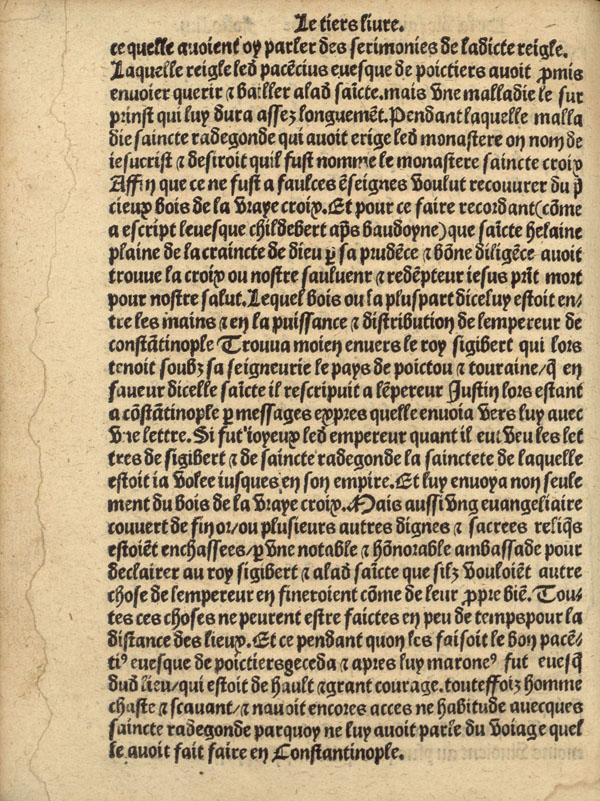 Le tiers liure.
ce quelle auoient oy parler des serimonies de ladicte reigle.
Laquelle reigle led pacēcius euesque de poictiers auoit ꝓmis
enuoier querir ⁊ bailler alad saīcte. mais vne malladie le sur
prinst qui luy dura assez longuemēt. Pendant laquelle malla
die saincte radegonde qui auoit erige led monastere on nom de
iesucrist ⁊ desiroit quil fust nomme le monastere saincte croix
Affin que ce ne fust a faulces ēseignes voulut recouurer du p̄
cieux bois de la vraye croix. Et pour ce faire recordant (cōme
a escript leuesque childebert ap̄s baudoyne) que saīcte helaine
plaine de la craincte de dieu ꝑ sa prudēce ⁊ bōne diligēce auoit
trouue la croix ou nostre sauluenr ⁊ redēpteur iesus prīt mort
pour nostre salut. Lequel bois ou la pluspart diceluy estoit en⸗
tre les mains ⁊ en la puissance ⁊ distribution de lempereur de
constātinople Trouua moien enuers le roy sigibert qui lors
tenoit soubz sa seigneurie le pays de poictou ⁊ touraine/ q̄ en
faueur dicelle saīcte il rescripuit a lēpereur Justin lors estant
a cōstātinople ꝑ messages expres quelle enuoia vers luy auec
vne lettre. Si fut ioyeux led empereur quant il eut veu les let
tres de sigibert ⁊ de saincte radegonda la sanctete de laquelle
estoit ia volee iusques en son empire. Et luy enuoya non seule
ment du bois de la vraye croix. Mais aussi vng euangeliaire
couuert de fin or/ ou plusieurs autres dignes ⁊ sacrees reliq̄s
estoiēt enchassees/ ꝑ vne notable ⁊ hōnorable ambassade pour
declairer au roy sigibert ⁊ alad saīcte que silz vouloiēt autre
chose de lempereur en fineroient cōme de leur ꝓpre biē. Tou⸗
tes ces choses ne peurent estre faictes en peu de tempspour la
distance des lieux. Et ce pendant quon les faisoit le bon pacē⸗
tiꝰ euesque de poictiersgeceda ⁊ apres luy maroneꝰ fut euesq̄
dud lieu/ qui estoit de hault ⁊ grant courage. touteffoiz homme
chaste ⁊ scauant/ ⁊ nauoit encores acces ne habitude auecques
saincte radegonde parquoy ne luy auoit parle du voiage quel
le auoit fait faire en Constantinople.